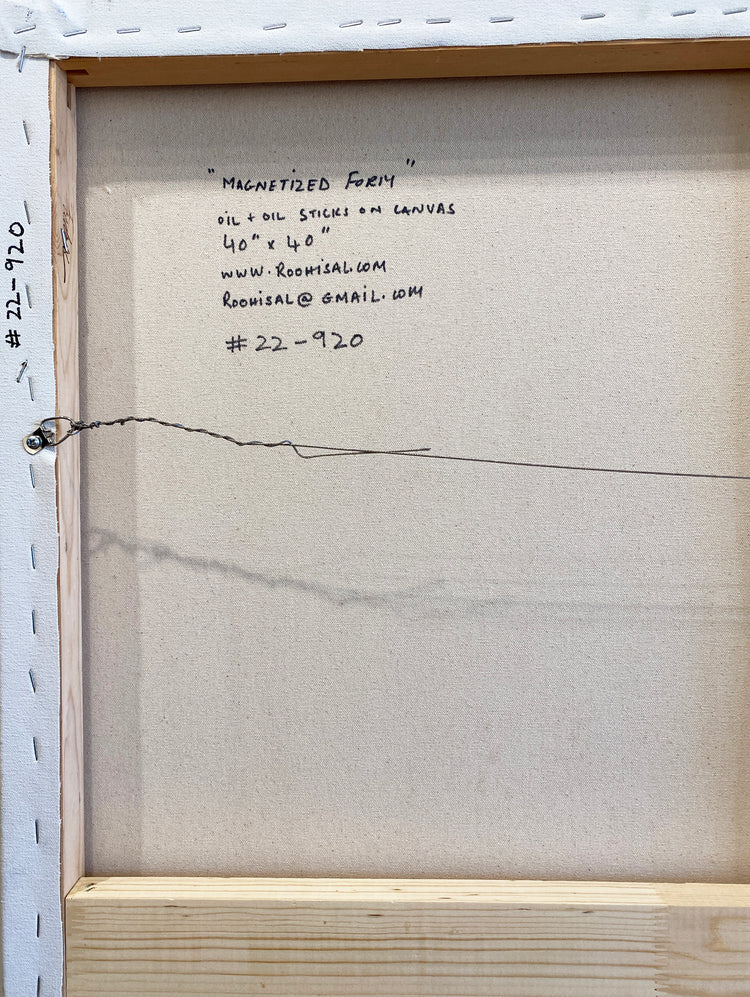 "MAGNETIZED FORM"
OIL + OIL STICKS ON CANVAS
40" x 40"
WWW.ROOHISAL.COM
ROOHISAL@GMAIL.COM
#22-920
#22-920